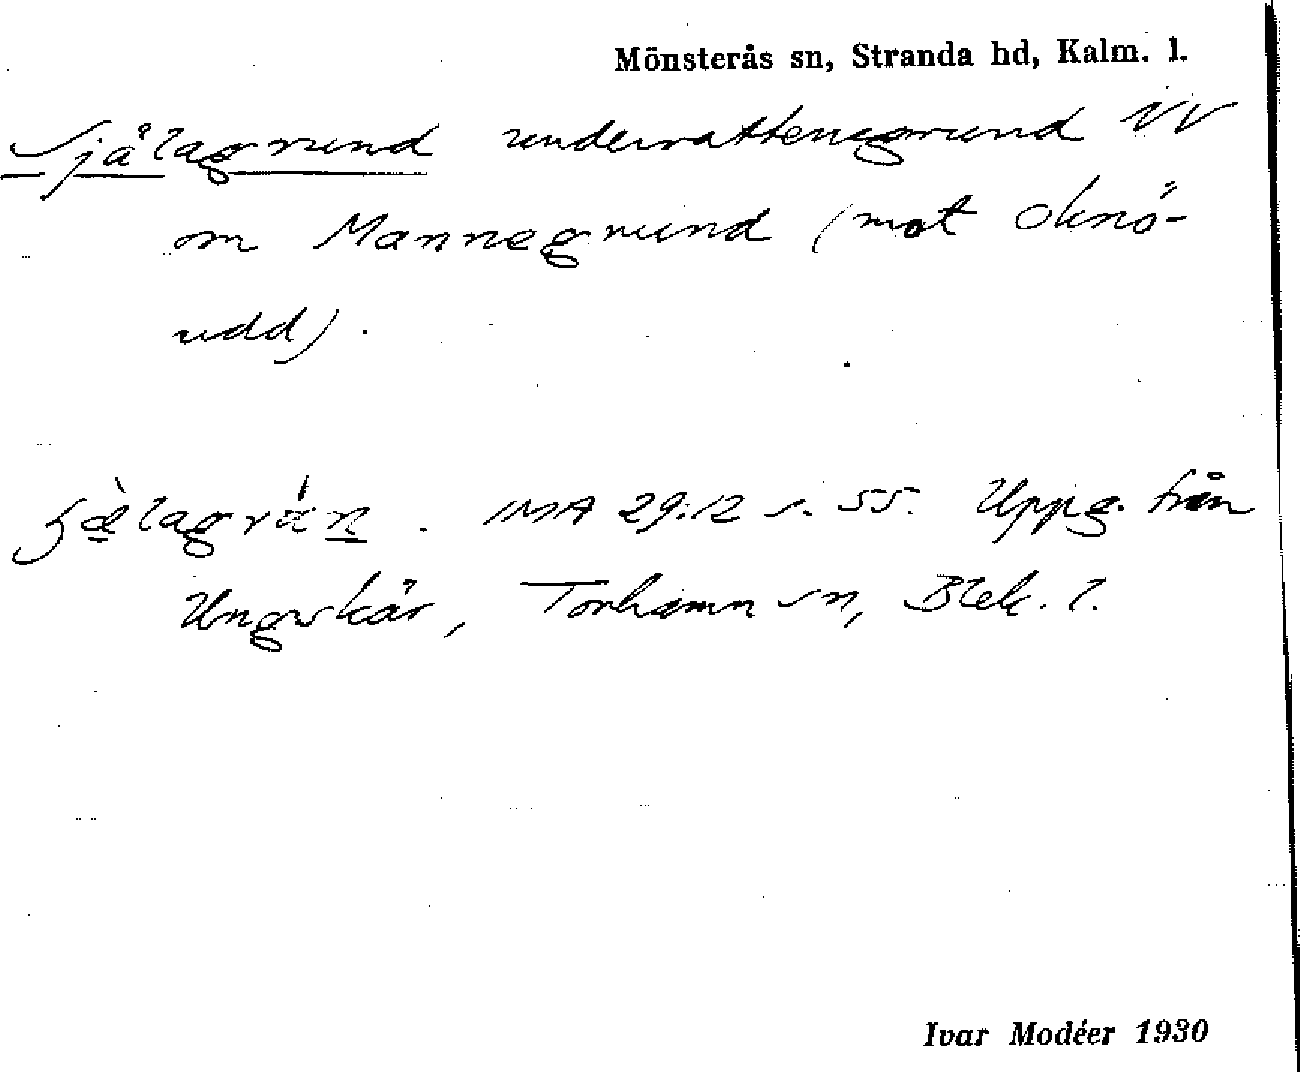 Mönsterås sn, Stranda hd, Kalm. l.
Själagrund undervattensgrund VV
om Mannegrund (mot Oknö-
udd).
IMA 29:12 s. 55. Uppg. från
Ungskär, Torhamn sn, Blek. l.
Ivar Modéer 1930